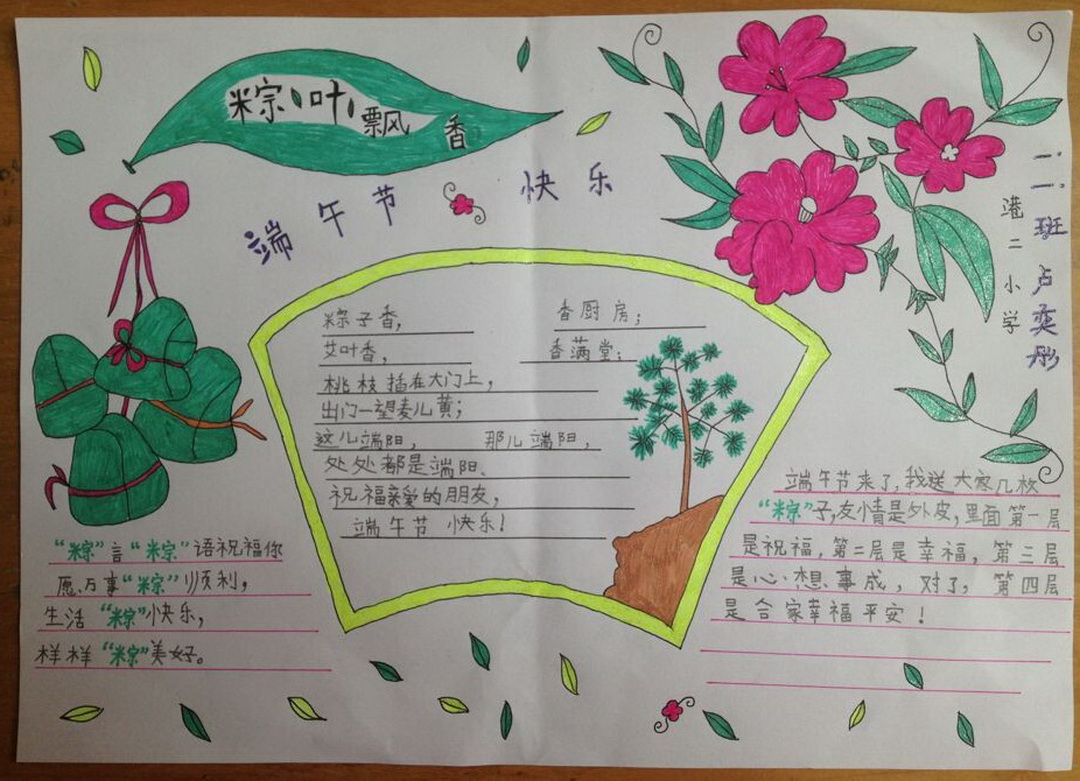 粽叶飘香
端午节快乐
港二小学
二.一.班 卢奕彤
粽子香， 香厨房；
艾叶香， 香满堂；
桃枝插在大门上，
出门一望麦儿黄；
这儿端阳， 那儿端阳，
处处都是端阳、
祝福亲爱的朋友，
端午节快乐！
“粽”言“粽”语祝福你
愿万事“粽”顺利，
生活“粽”快乐，
样样“粽”美好。
端午节来了，我送大家几枚
“粽”子，友情是外皮，里面第一层
是祝福，第二层是幸福，第三层
是心想事成，对了，第四层
是合家幸福平安！